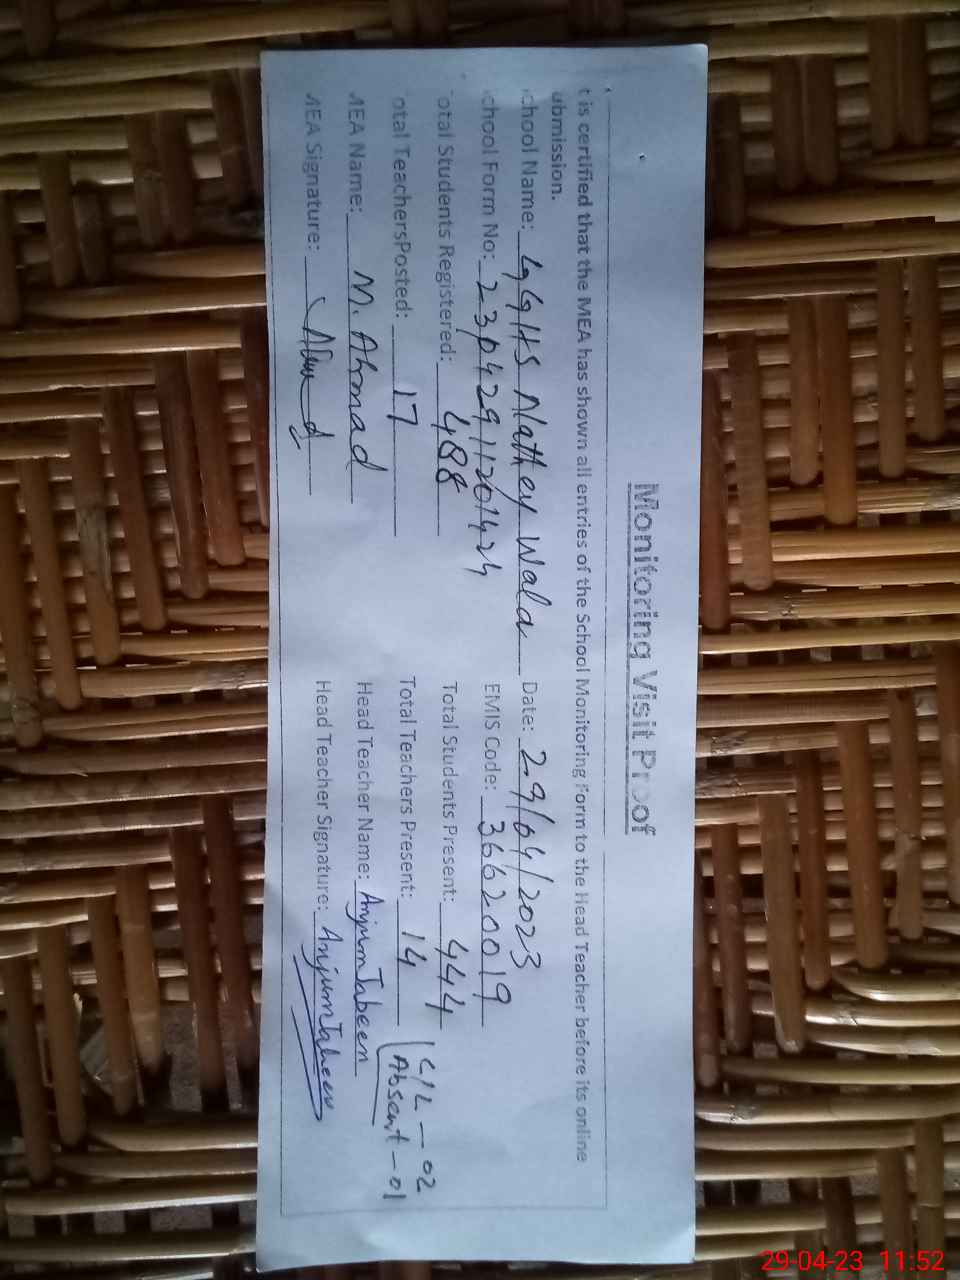 Monitoring Visit Proof
t is certified that the MEA has shown all entries of the School Monitoring Form to the Head Teacher before its online
ubmission.
chool Name: GGHS Nathey Wala Date: 29/04/2023
chool Form No: 23P42911201424 EMIS Code: 36620019
otal Students Registered: 488 Total Students Present: 444
otal TeachersPosted: 17 Total Teachers Present: 14
C/L - 02
Absent - 01
MEA Name: M. Ahmad Head Teacher Name: Anjum Jabeen
MEA Signature: Head Teacher Signature: Anjum Jabeen
29-04-23 11:52